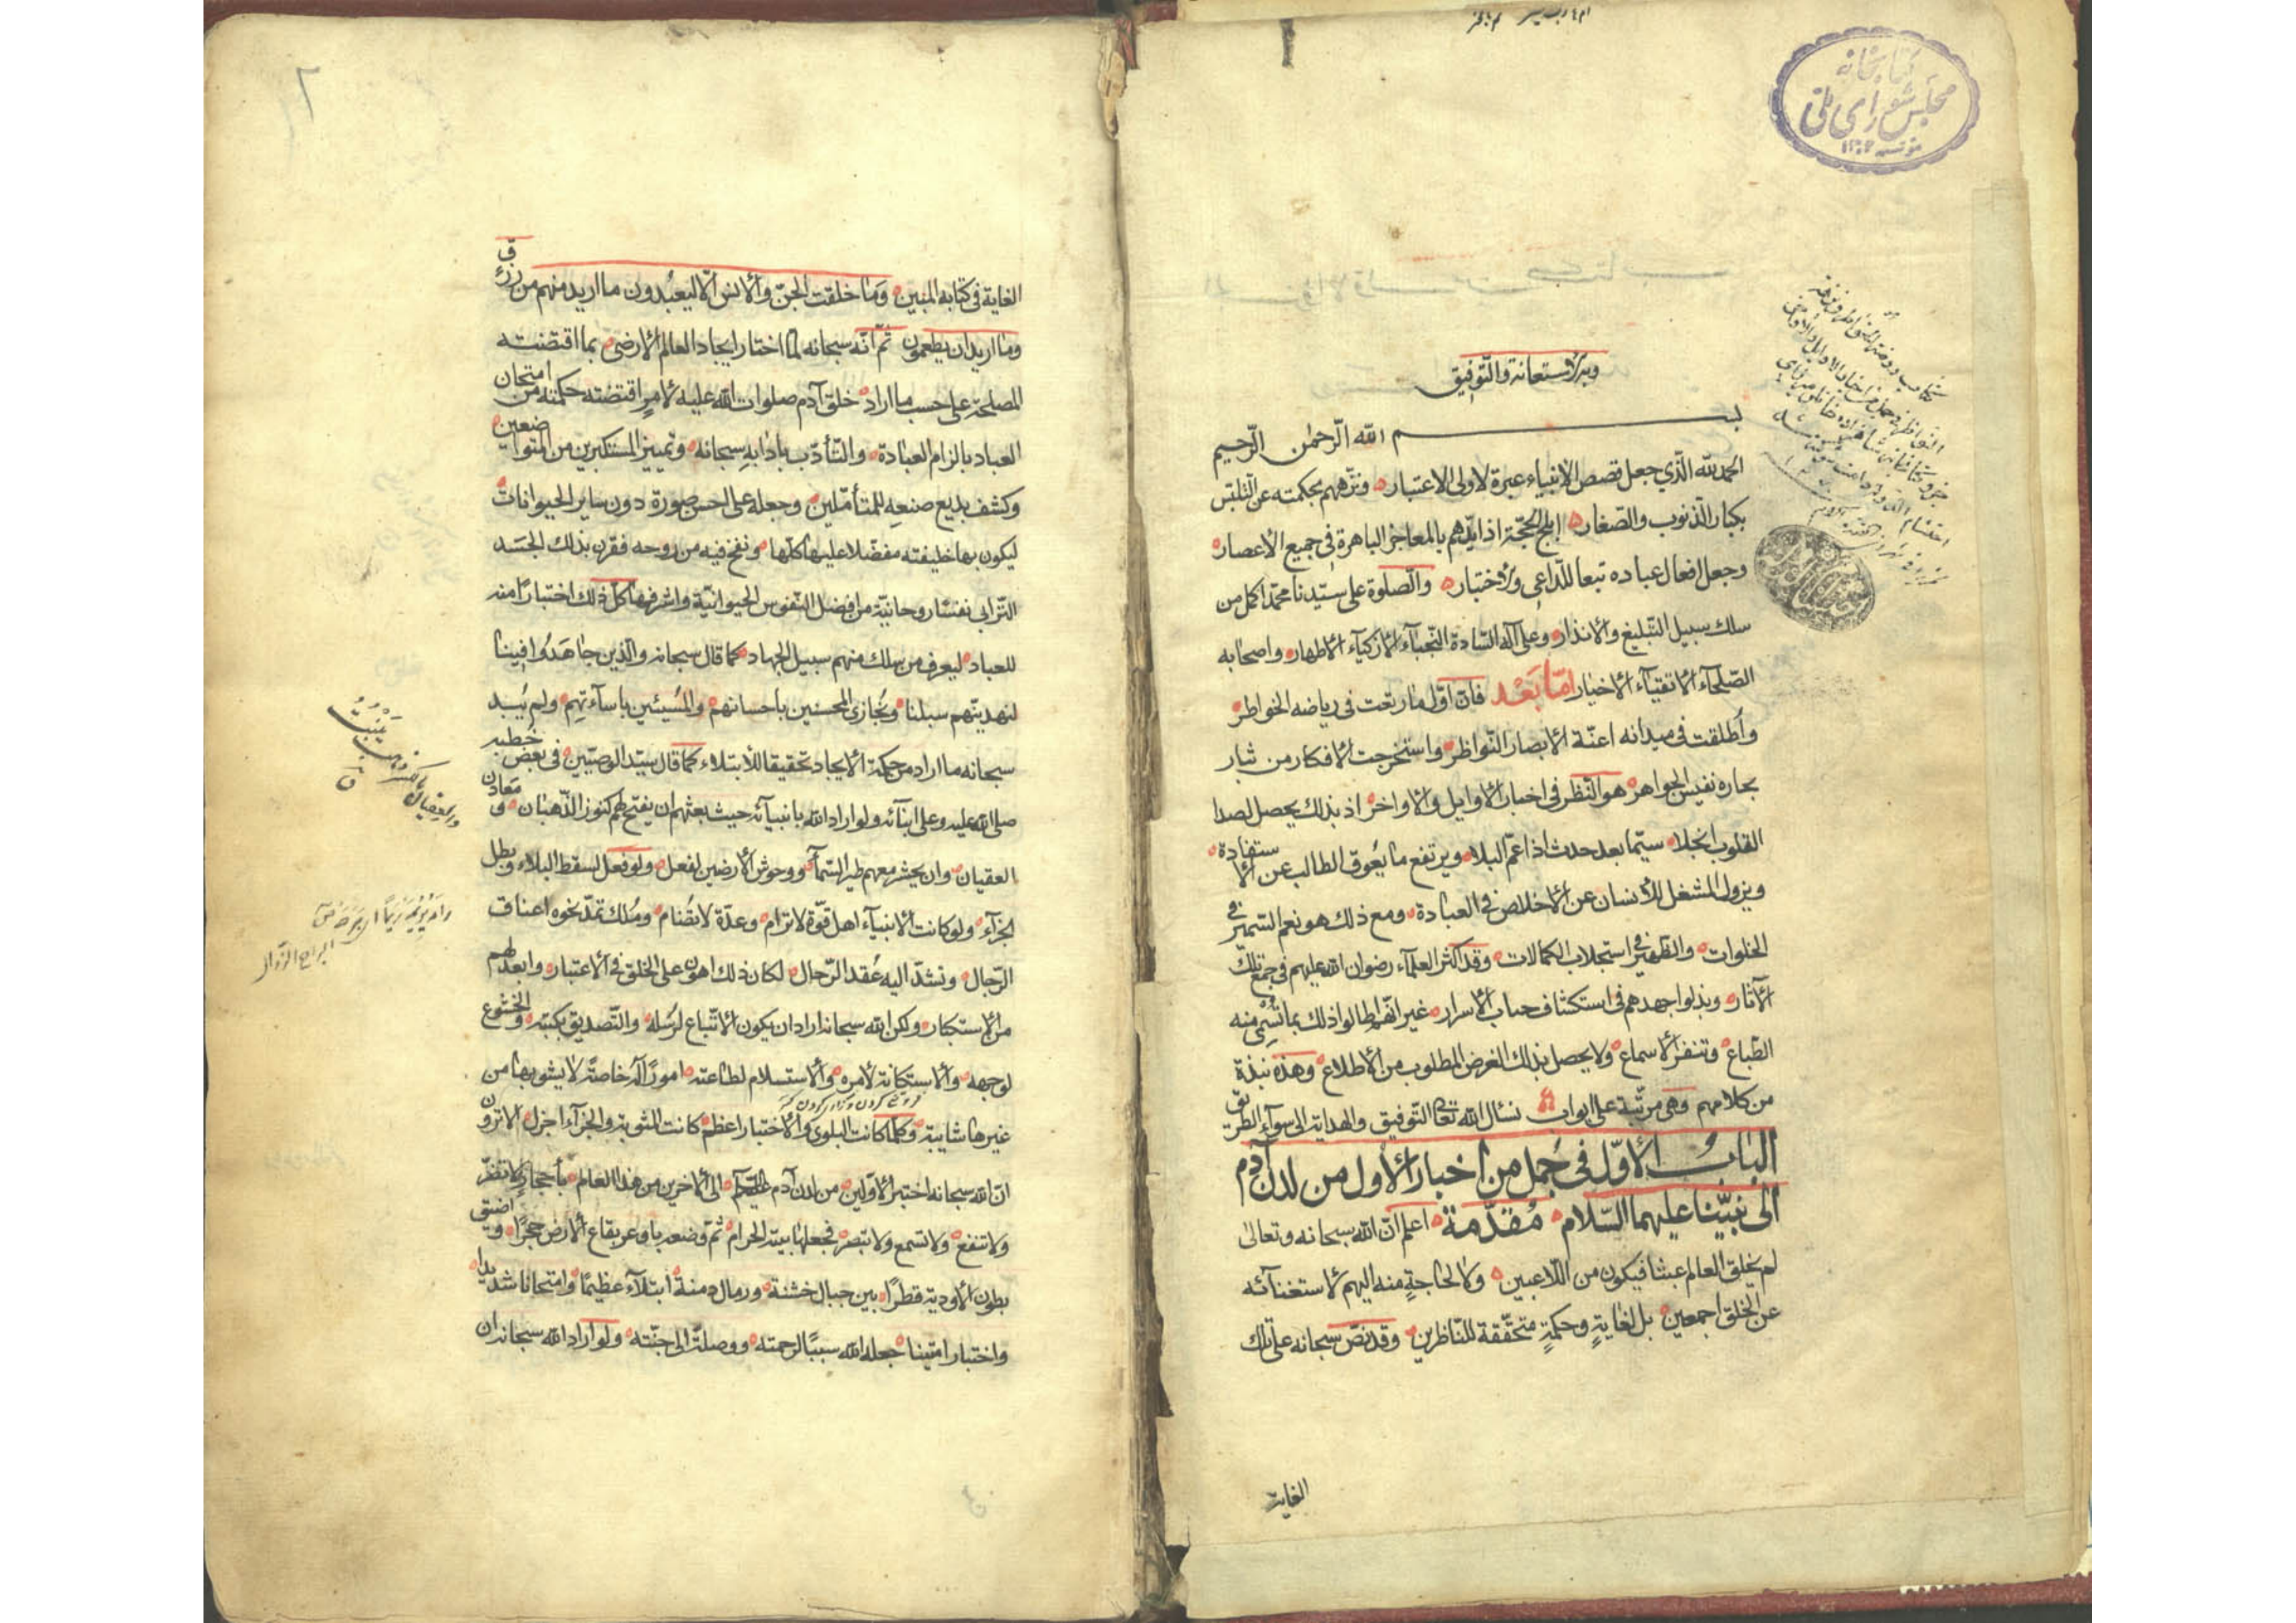 كتابخانه
مجلس شورای ملی
مؤسسه ۱۳۰۲
وبه الاستعانة والتّوفيق
بسم الله الرّحمن الرّحيم
الحمد لله الّذي جعل قصص الانبياء عبرة لاولى الاعتبار ونزّههم بحكمته عن التلبّس
بكبار الذنوب والصّغار ابلج الحجّة اذ ايّدهم بالمعاجز الباهرة في جميع الأعصار
وجعل افعال عباده تبعا للدّاعى والاختبار والصّلوة على سيّدنا محمّد اكمل من
سلك سبيل التّبليغ والانذار وعلى آله السّادة النّجباء الأزكياء الأطهار واصحابه
الصّلحاء الاتقياء الأخيار امّا بَعْد فانّ اوّل ما رتعت فى رياضه الخواطر
وأطلقت فى ميدانه اعنّة الابصار النّواظر واستخرجت الأفكار من تيار
بحاره نفيس الجواهر هو النّظر فى اخبار الأوايل والأواخر اذ بذلك يحصل لصدا
القلوب انجلا سيّما بعد حدث اذا عمّ البلا ويرتفع ما يعُوق الطالب عن الاستفادة
ويزول المشغل للأنسان عن الأخلاص فى العبادة ومع ذلك هو نعم السّمير فى
الخلوات والظهير فى استجلاب الكمالات وقد اكثر العلماء رضوان الله عليهم فى جمع تلك
الآثار وبذلوا جهدهم فى استكشاف حباب الأسرار غير انّهم اطالوا ذلك بما تسْئم منه
الطّباع وتنفر الأسماع ولا يحصل بذلك الغرض المطلوب من الأطلاع وهذه نبذة
من كلامهم وهى مرتّبة على ابواب نسأل الله تعالى التّوفيق والهداية الى سوآء الطريق
الباب الأوّل فى جُمل من اخبار الأول من لدن آدم
الى نبيّنا عليهما السّلام مُقدّمة اعلم انّ الله سبحانه وتعالى
لم يخلق العالم عبثا فيكون من اللّاعبين ولا لحاجةٍ منه اليهم لاستغنآئه
عن الخلق اجمعين بل لغايةٍ وحكمةٍ متحقّقة للنّاظرين وقد نصّ سبحانه على تلك
الغاية
الغاية فى كتابه المبين وَما خلقت الجنّ والأنس الّا ليعبُدون ما اريد منهم من رزق
وما اريد ان يطعمون ثمّ انّه سبحانه لمّا اختار ايجاد العالم الأرضى بما اقتضته
المصلحة على حسب ما اراد خلق آدم صلوات الله عليه لأمرٍ اقتضته حكمته من امتحان
العباد بالزام العبادة والتّأدّب بادابه سبحانه وتمييز المستكبرين من المتواضعين
وكشف بديع صنعه للمتأمّلين وجعله على احسن صورة دون ساير الحيوانات
ليكون بها خليفته مفضّلا عليها كلّها ونفخ فيه من روحه فقرن بذلك الجسَد
التّرابى نفسًا روحانيّة من افضل النّفوس الحيوانيّة واشرفها كلّ ذلك اختبارًا منه
للعباد ليعرف من سلك منهم سبيل الجهاد كما قال سبحانه والّذين جاهَدُوا فينا
لنهدينّهم سبلنا ويُجازى المحسنين باحسانهم والمُسيئين باساءتهم ولم يُبد
سبحانه ما اراد من حكمة الأيجاد تحقيقا للأبتلاء كما قال سيّد الوصيّين فى بعض خطبه
صلى الله عليه وعلى ابنآئه ولو اراد الله بانبيآئه حيث بعثهم ان يفتح لهم كنوز الذّهبان ومَعادن
العقيان وان يحشر معهم طير السّمآء ووحوش الأرضين لفعل ولو فعل لسقط البلاء وبطل
الجزآء ولو كانت الأنبيآء اهل قوّة لا ترام وعدّة لا تضُام ومُلك تمدّ نحوه اعناق
الرّجال وتشدّ اليه عُقد الرّحال لكان ذلك اهون على الخلق فى الأعتبار وابعد لهم
من الأستكبار ولكن الله سبحانه اراد ان يكون الأتّباع لرُسله والتّصديق بكتبه والخشوع
لوجهه والأستكانة لأمره والأستسلام لطاعته امورًا له خاصّة لا يشوبها من
غيرها شايبة وكلّما كانت البلوى والأختبار اعظم كانت المثوبة والجزآء اجزل الا ترون
انّ الله سبحانه اختبر الأوّلين من لدن آدم الى الأخرين من هذا العالم بأحجار لا تضرّ
ولا تنفع ولا تسمع ولا تبصر فجعلها بيته الحرام ثمّ وضعه باوعر بقاع الأرض حجرًا واضيق
بطون الأودية قطرًا بين جبال خشنة ورمال دمنة ابتلآء عظيمًا وامتحانا شديدا
واختبارا متينا جعله الله سببًا لرحمته ووصلة الى جنّته ولو اراد الله سبحانه ان